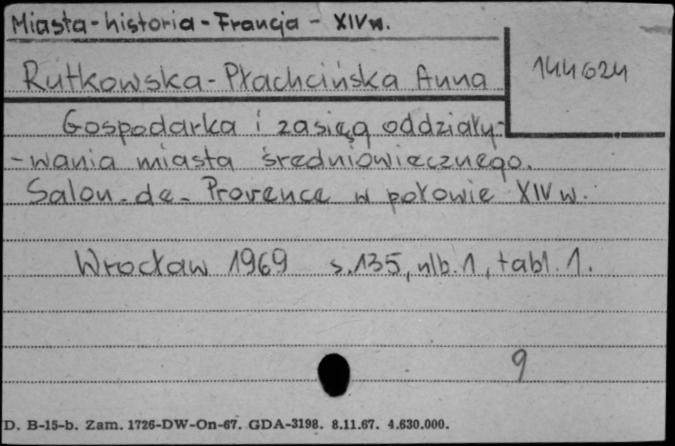 Miasta-historia-Francja - XIV w.
144624
Rutkowska-Płachcińska Anna
Gospodarka i zasięg oddziały-
-wania miasta średniowiecznego.
Salon-de-Provence w połowie XIV w.
Wrocław 1969 s.135, nlb.1, tabl.1.
9
D. B-15-b. Zam. 1726-DW-On-67. GDA-3198. 8.11.67. 4.630.000.